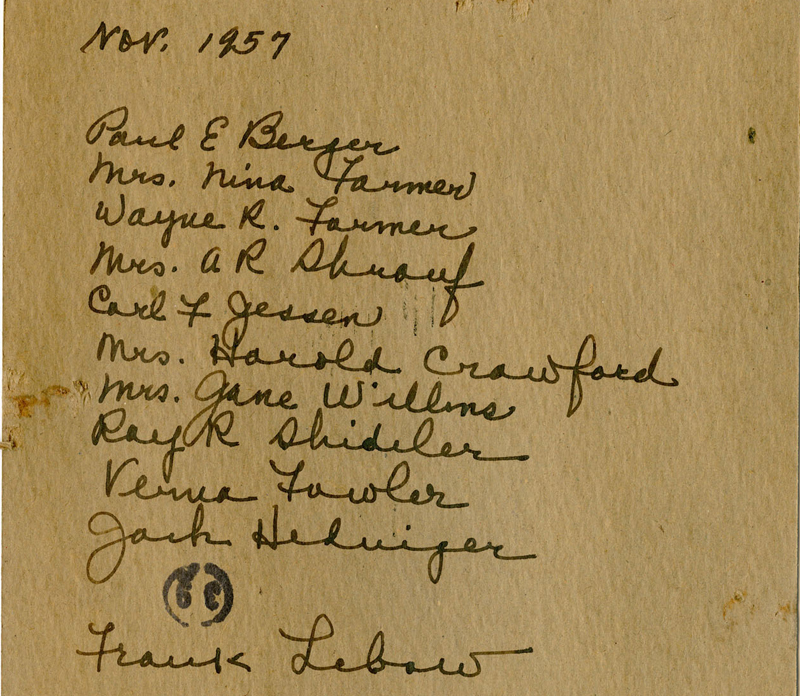 Nov. 1957
Paul E Berger
Mrs. Nina Farmer
Wayne R. Farmer
Mrs. A R Shrauf
Carl F Jessen
Mrs. Harold Crawford
Mrs. Jane Willms
Ray R Shideler
Verna Fowler
Jack Hedwiger
Frank Lebow